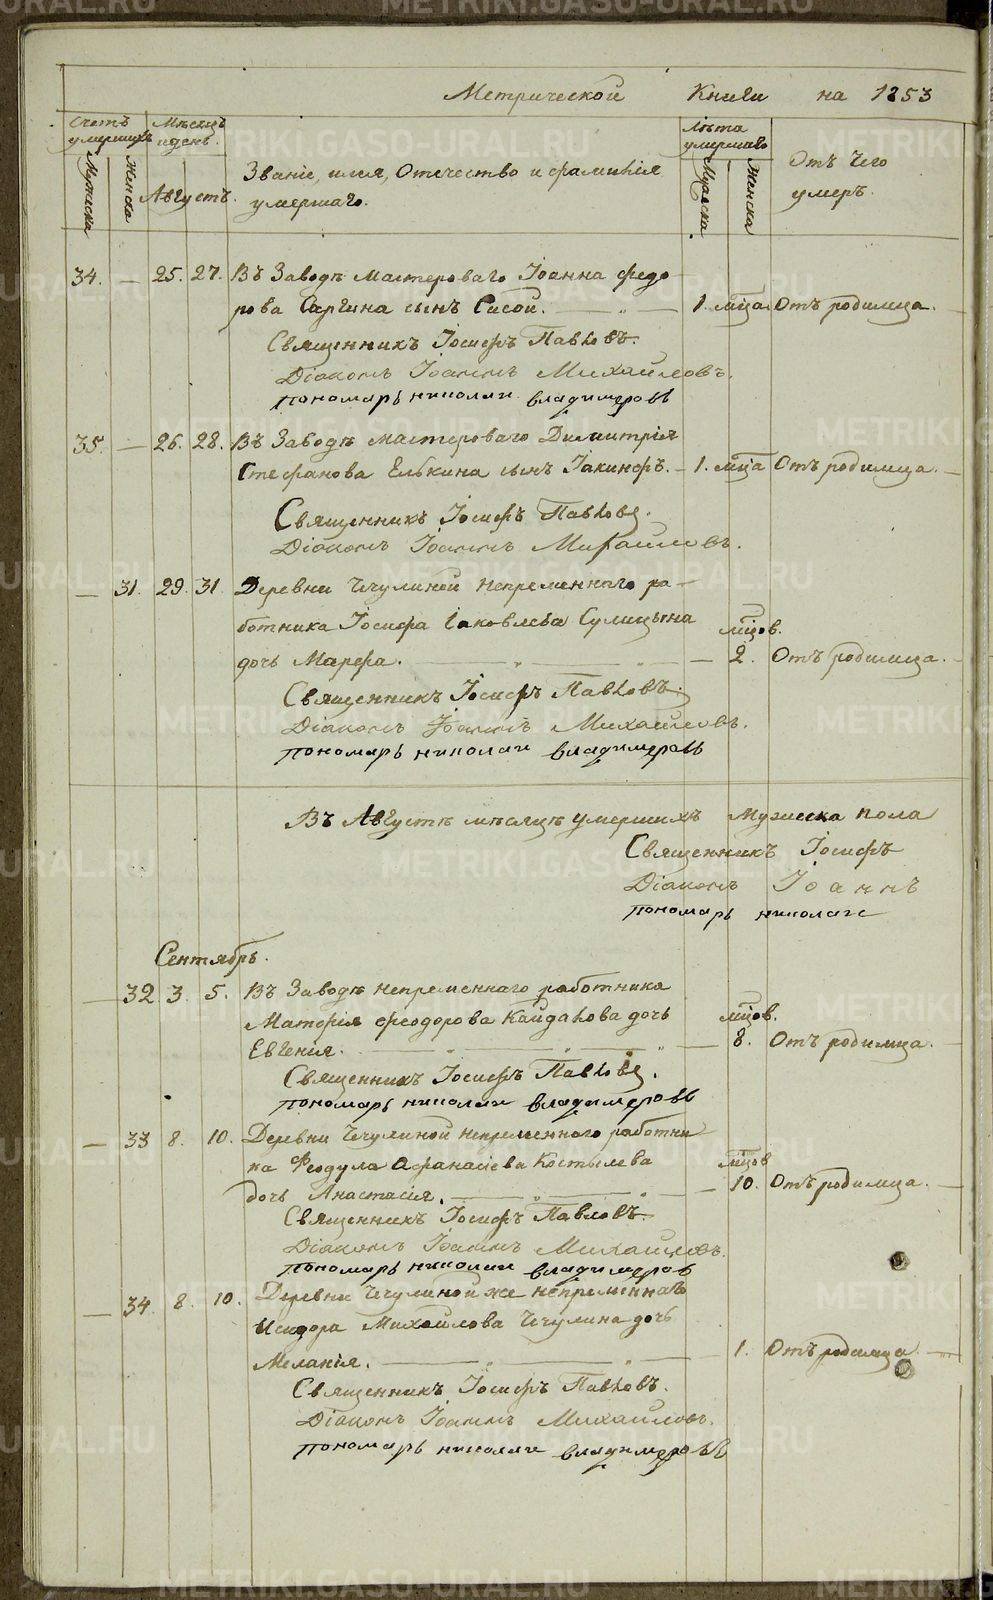 Метрической Книги на 1853
Счетъ умершихъ
Мужеска
Женска
Мѣсяцъ и день.
Августъ.
Званіе, имя, Отечество и фамилія
умершаго.
Лѣта умершаго
Мужеска
Женска
Отъ чего
умеръ.
34. — 25. 27. Въ Заводѣ мастероваго Іоанна Федо
рова Саргина сынъ Сисой. — 1. мца Отъ родимца.
Священникъ Іосифъ Павловъ.
Діаконъ Іоаннъ Михайловъ.
пономарь николаи владимеровъ
35. — 26. 28. Въ Заводѣ мастероваго Димитрія
Стефанова Елькина сынъ Іакинфъ. — 1. мца Отъ родимца.
Священникъ Іосифъ Павловъ.
Діаконъ Іоаннъ Михайловъ.
— 31. 29. 31. Деревни Чечулиной непременнаго ра-
ботника Іосифа Іаковлева Сулицына мцов.
дочь Марфа. — 2. Отъ родимца.
Священникъ Іосифъ Павловъ.
Діаконъ Іоаннъ Михайловъ.
пономарь николаи владимеровъ
Въ Августѣ мѣсяцѣ умершихъ Мужеска пола
Священникъ Іосифъ
Діаконъ Іоаннъ
пономарь николаи
Сентябрь.
— 32 3. 5. Въ Заводѣ непременнаго работника
Матфія Феодорова Кайдалова дочь мцов.
Евгенія. — 8. Отъ родимца.
Священникъ Іосифъ Павловъ.
пономарь николаи владимеровъ
— 33 8. 10. Деревни Чечулиной непременнаго работни
ка Феодула Афанасіева Костылева мцов
дочь Анастасія. — 10. Отъ родимца.
Священникъ Іосифъ Павловъ
Діаконъ Іоаннъ Михайловъ.
пономарь николаи владимеров
— 34. 8. 10. Деревни Чечулиной же непременнаго
Исидора Михайлова Чечулина дочь
Меланія. — 1. Отъ родимца.
Священникъ Іосифъ Павловъ.
Діаконъ Іоаннъ Михайловъ.
пономарь николаи владимеровъ
METRIKI.GASO-URAL.RU